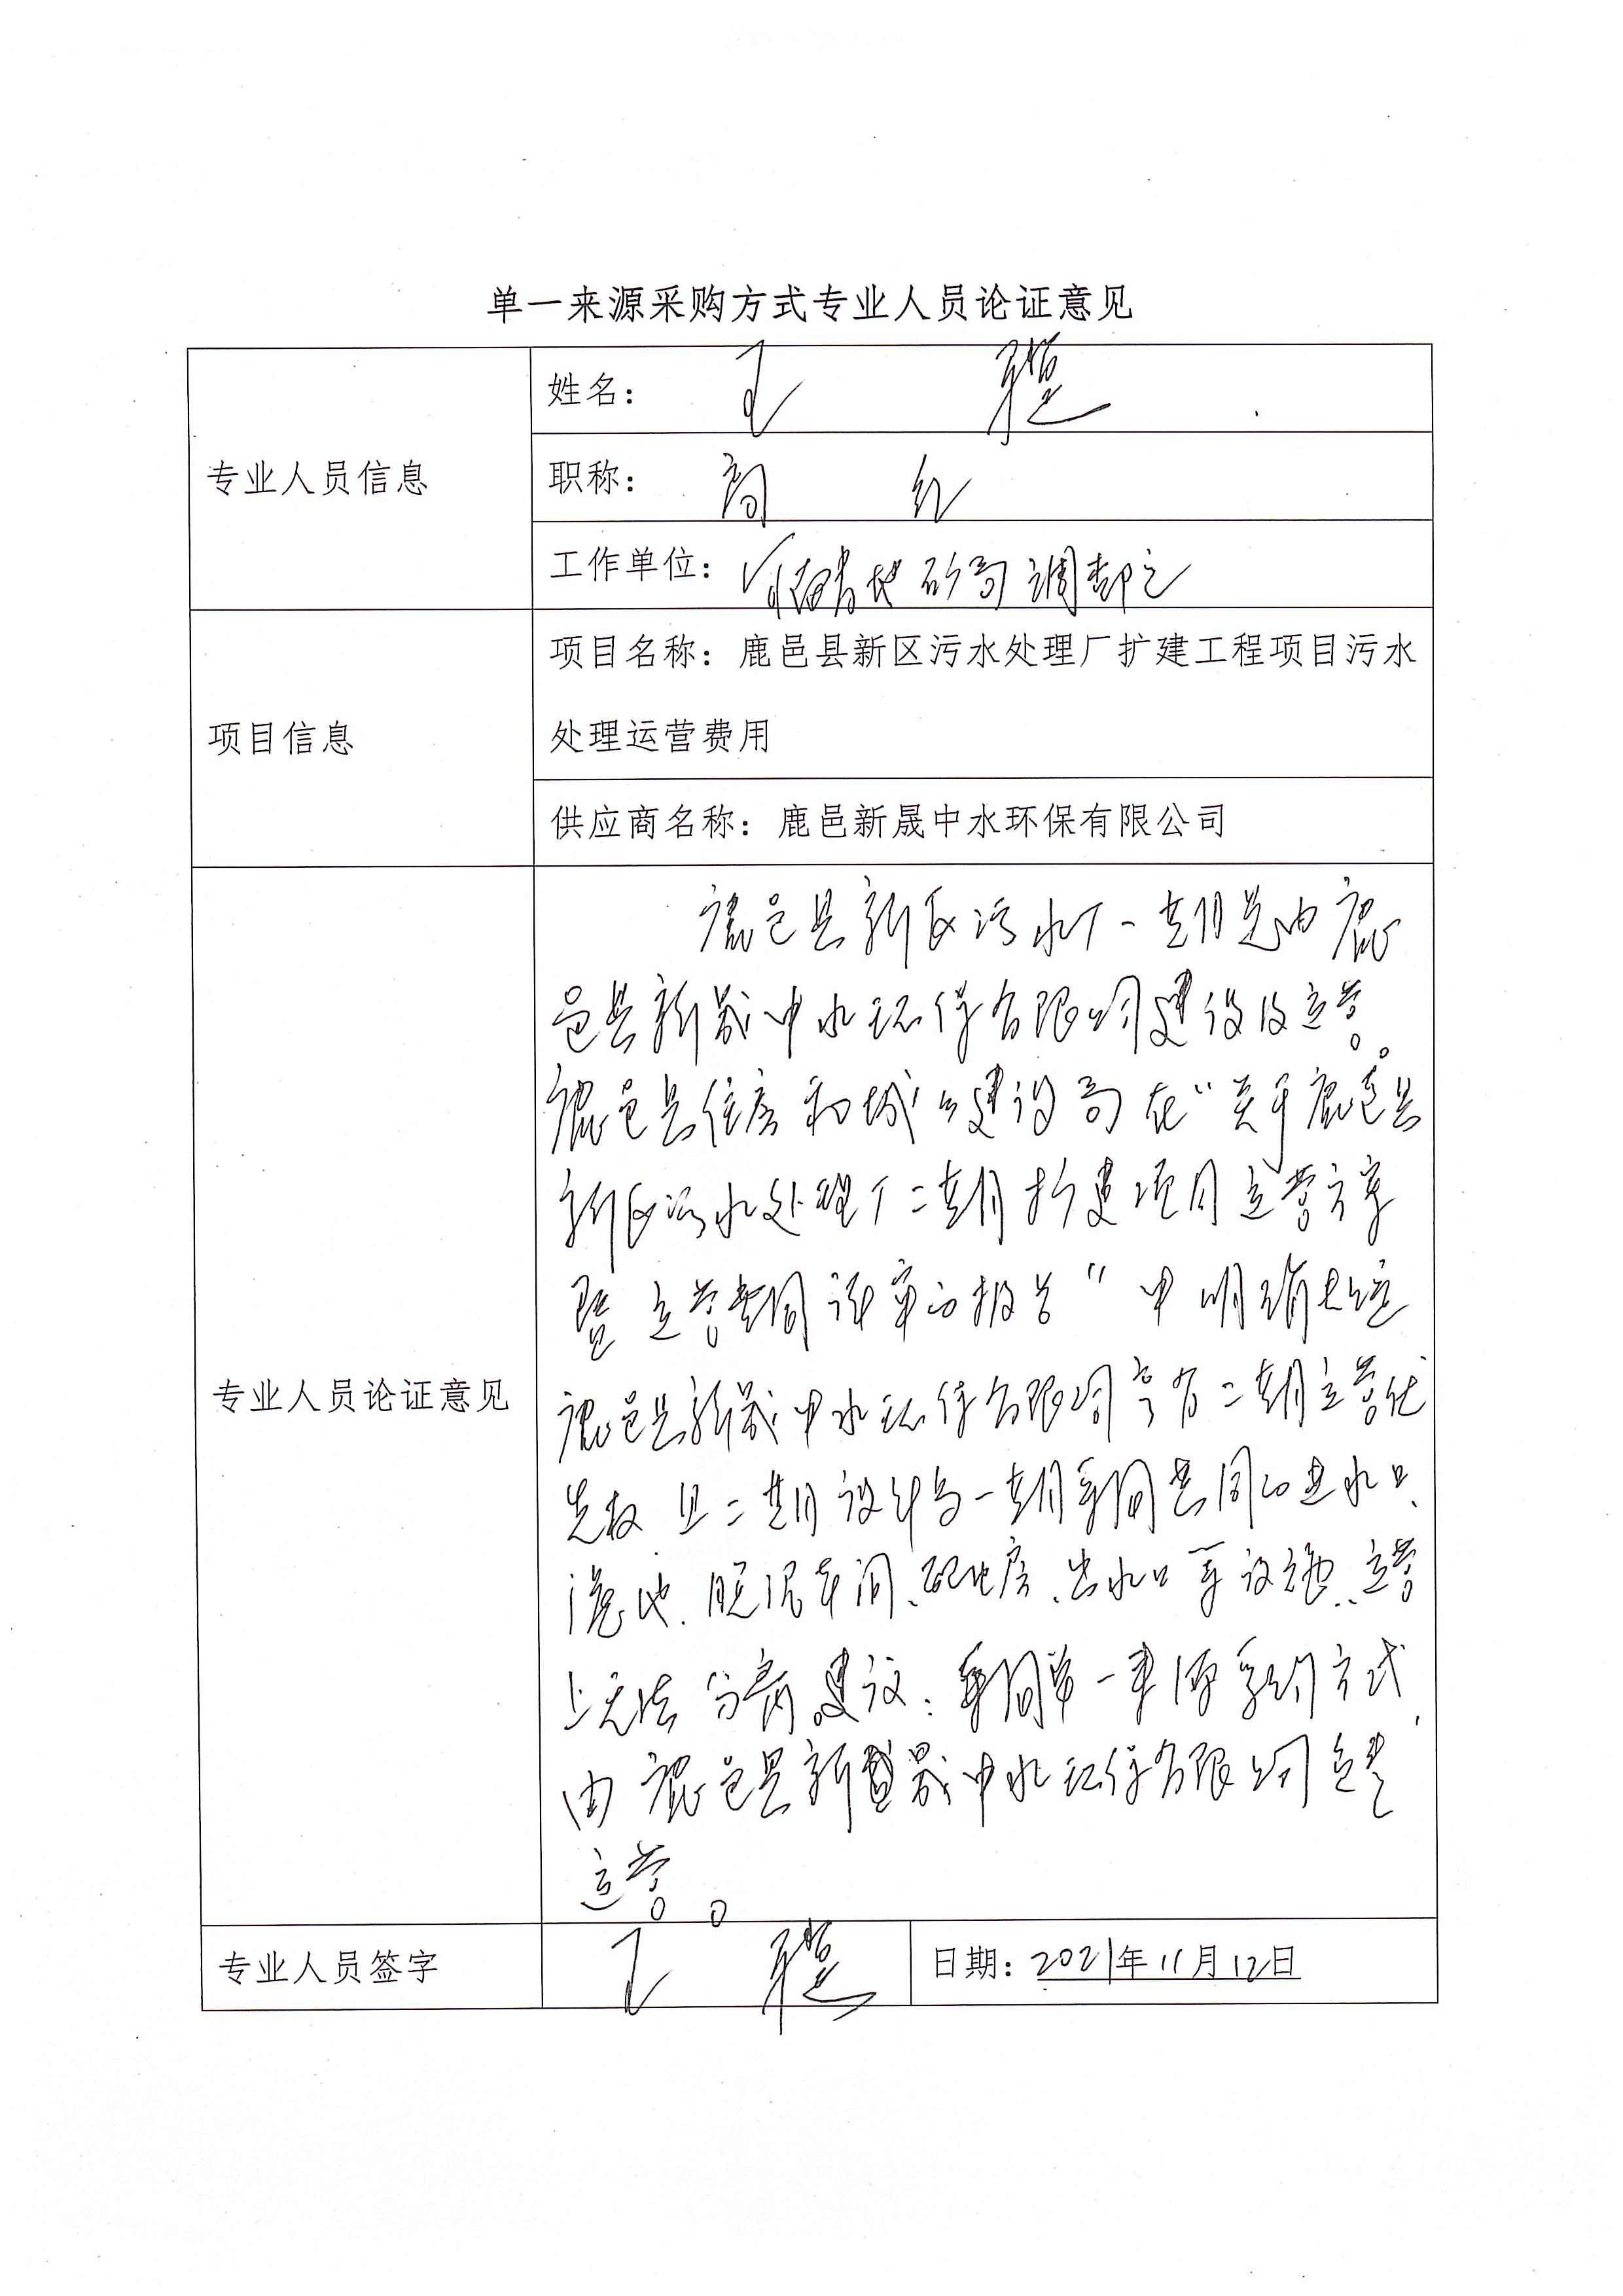 单一来源采购方式专业人员论证意见
专业人员信息
姓名：王
职称：高级
工作单位：河南省地矿局调查
项目信息
项目名称：鹿邑县新区污水处理厂扩建工程项目污水
处理运营费用
供应商名称：鹿邑新晟中水环保有限公司
专业人员论证意见
鹿邑县新区污水厂一期是由鹿
邑县新晟中水环保有限公司建设及运营。
鹿邑县住房和城乡建设局在“关于鹿邑县
新区污水处理厂二期扩建项目运营方案
暨运营费用评审的报告”中明确
鹿邑县新晟中水环保有限公司享有二期运营优
先权 且二期设计与一期采用共同的进水口、
池、脱泥车间、配电房、出水口等设施、运营
上无法分离。建议：采用单一来源采购方式，
由鹿邑县新晟中水环保有限公司负责
运营。
专业人员签字
王
日期：2021年11月12日